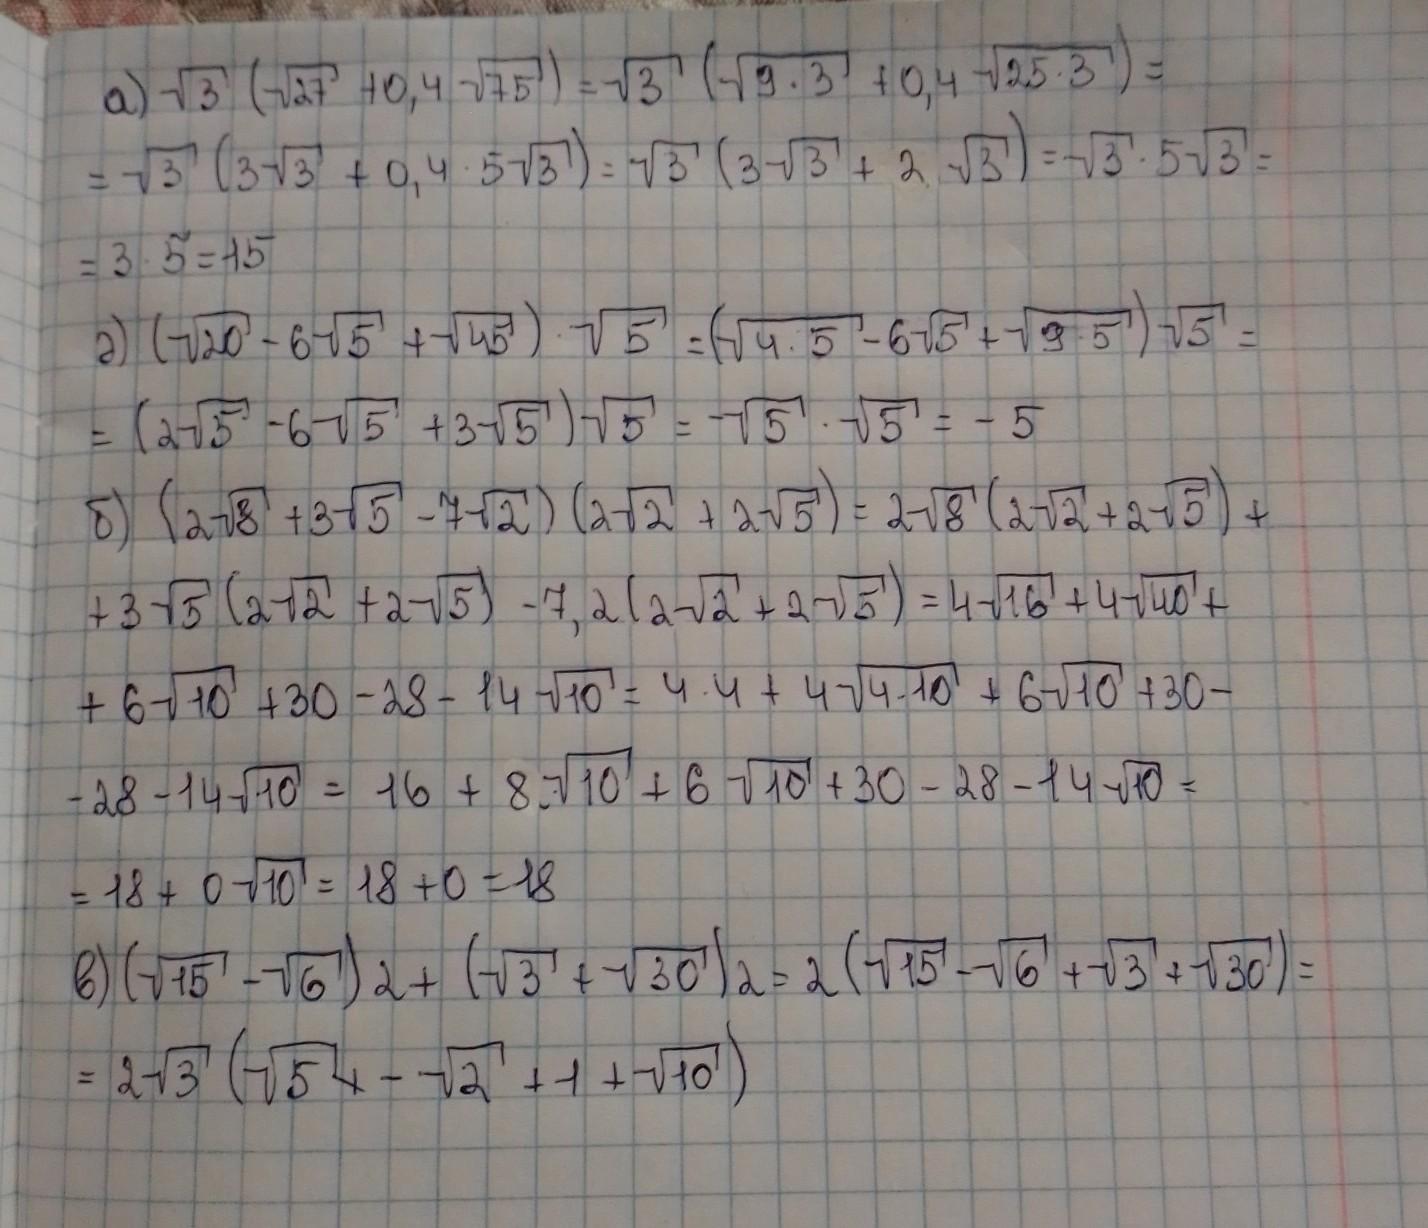 а) √3 (√27 + 0,4 √75) = √3 (√9·3 + 0,4 √25·3) =
= √3 (3√3 + 0,4 · 5√3) = √3 (3√3 + 2 √3) = √3 · 5√3 =
= 3 · 5 = 15
г) (√20 - 6√5 + √45) · √5 = (√4·5 - 6√5 + √9·5) √5 =
= (2√5 - 6√5 + 3√5) √5 = -√5 · √5 = - 5
б) (2√8 + 3√5 - 7√2) (2√2 + 2√5) = 2√8 (2√2 + 2√5) +
+ 3√5 (2√2 + 2√5) - 7,2 (2√2 + 2√5) = 4√16 + 4√40 +
+ 6√10 + 30 - 28 - 14√10 = 4·4 + 4√4·10 + 6√10 + 30 -
- 28 - 14√10 = 16 + 8·√10 + 6 √10 + 30 - 28 - 14√10 =
= 18 + 0√10 = 18 + 0 = 18
в) (√15 - √6) 2 + (√3 + √30) 2 = 2 (√15 - √6 + √3 + √30) =
= 2√3 (√5 - √2 + 1 + √10)